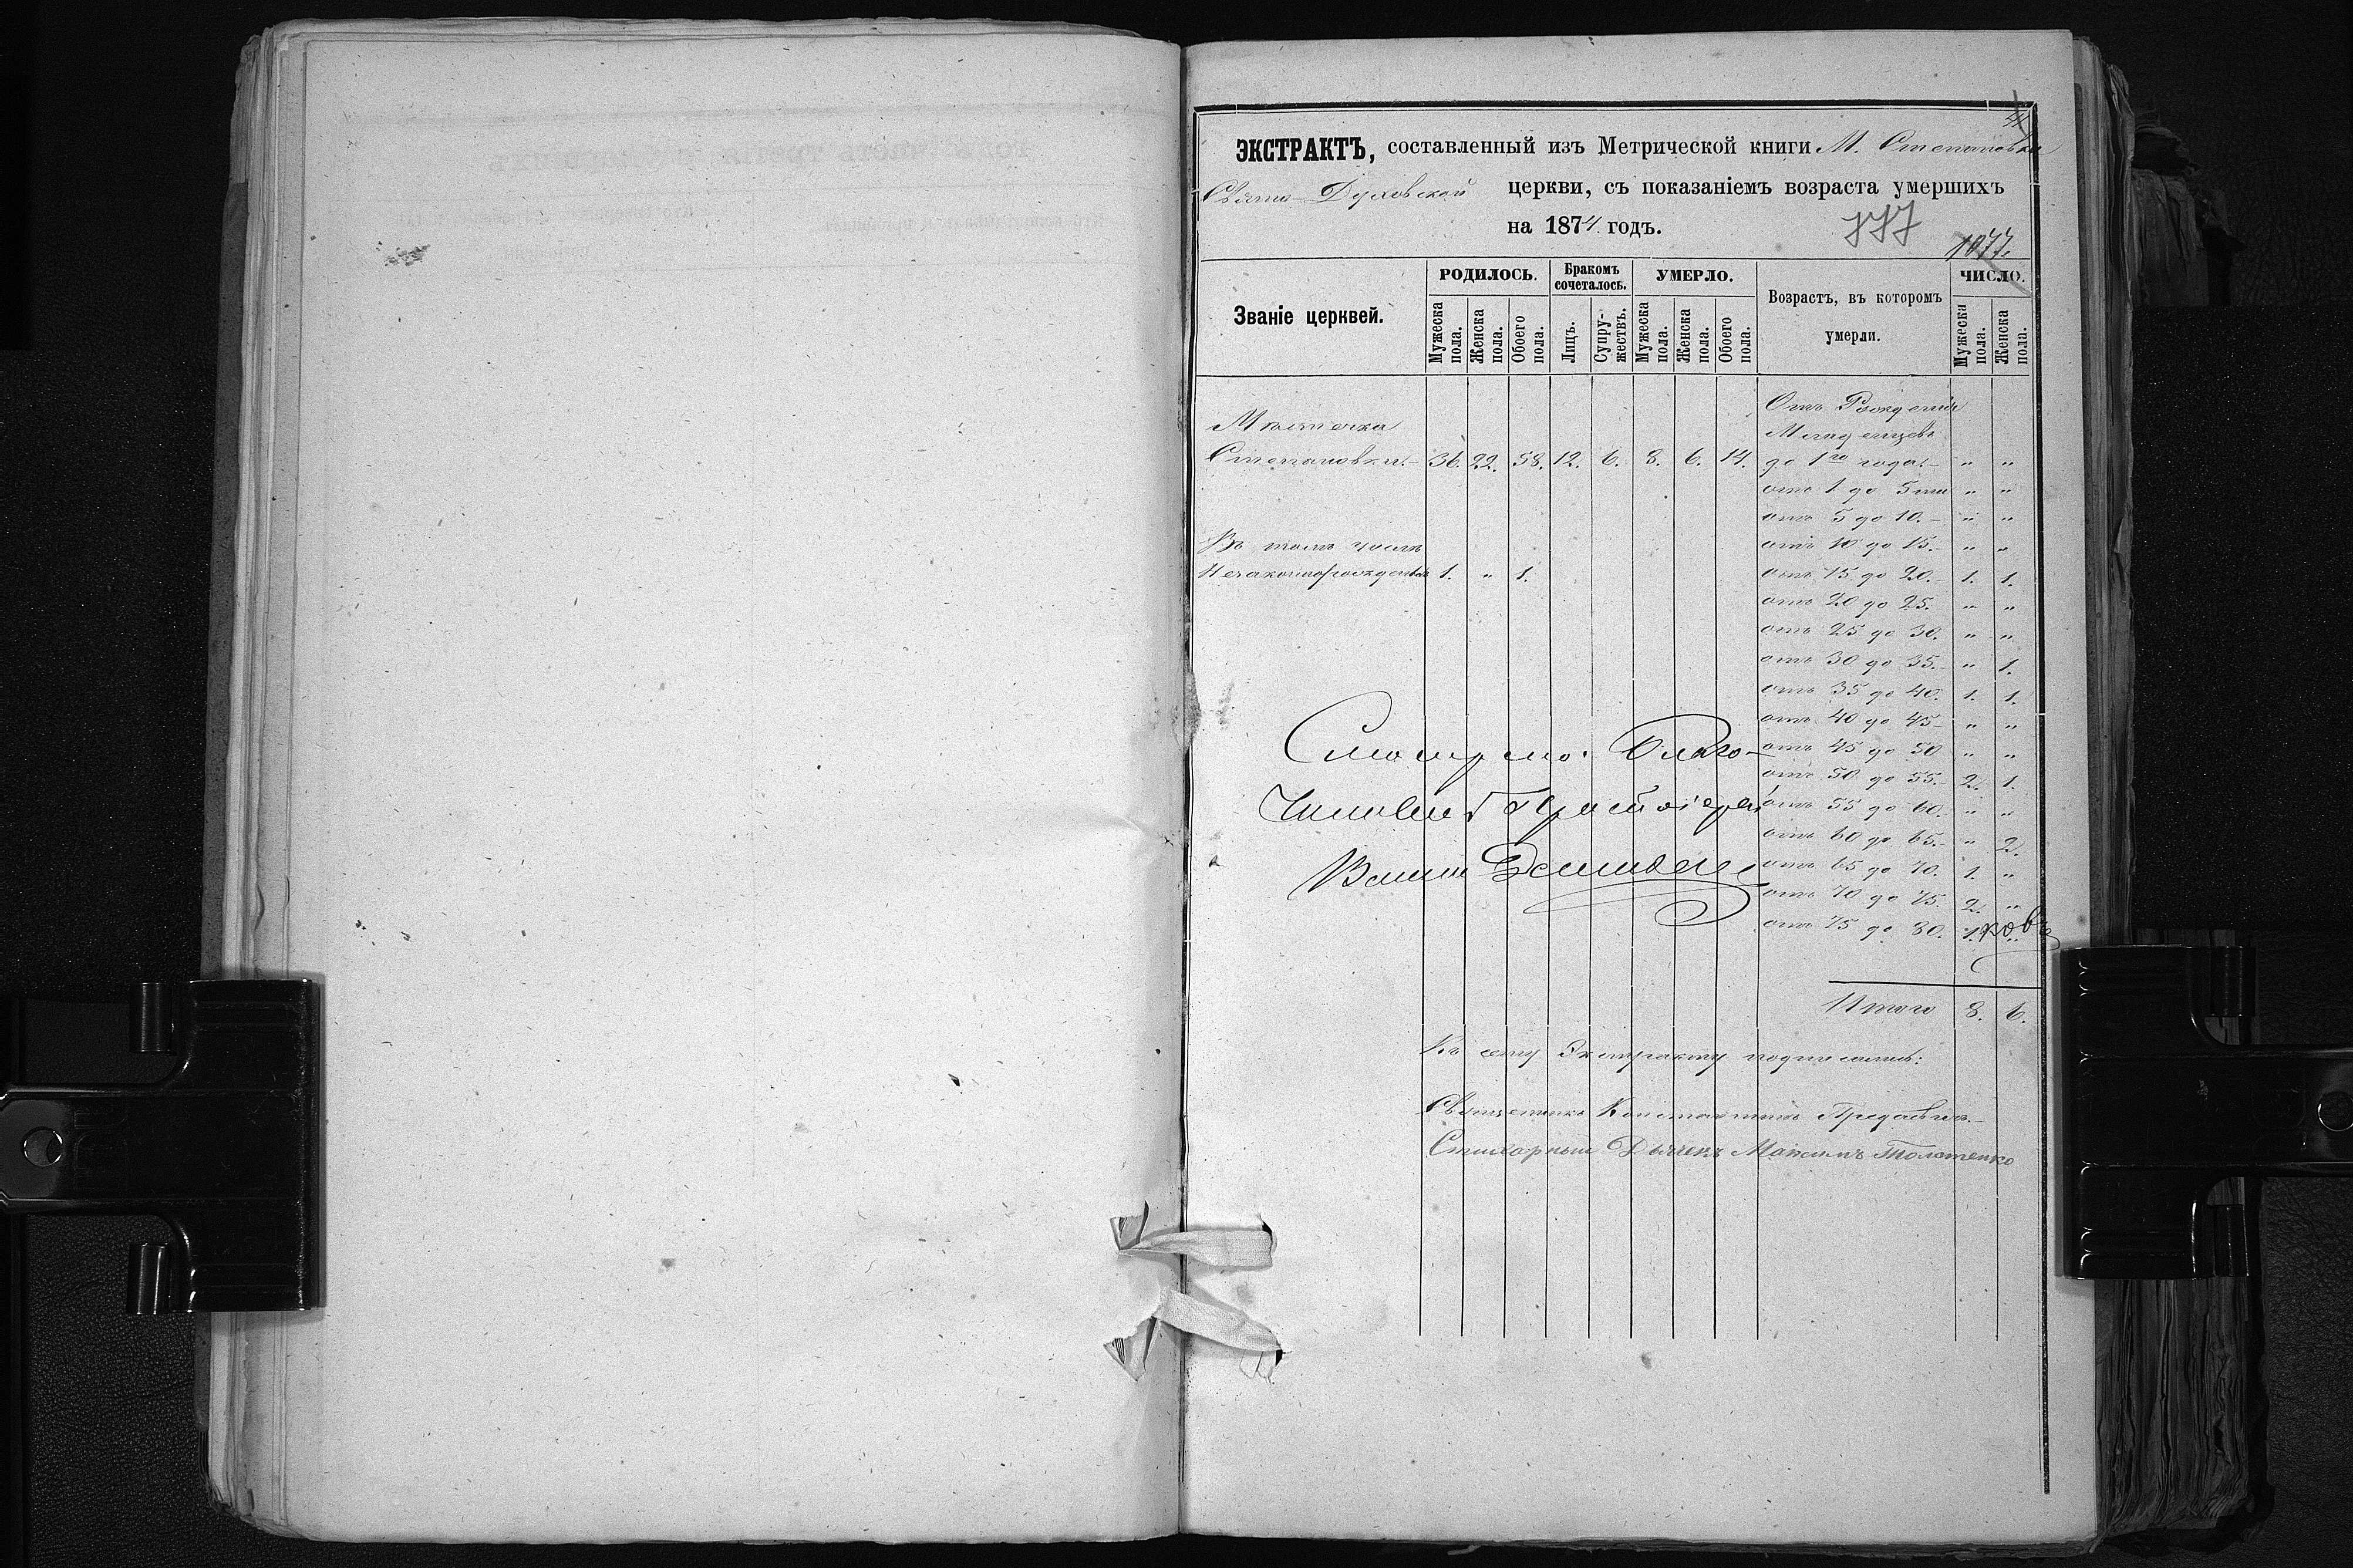 ЭКСТРАКТЪ, составленный изъ Метрической книги М. Степановки
Свято-Духовской церкви, съ показаніемъ возраста умершихъ
на 1874 годъ.
777
1077.
Званіе церквей.
РОДИЛОСЬ. Бракомъ сочеталось. УМЕРЛО. Возрастъ, въ которомъ умерли. ЧИСЛО.
Мужеска пола. Женска пола. Обоего пола. Лицъ. Супружествъ. Мужеска пола. Женска пола. Обоего пола. Мужеска пола. Женска пола.
Отъ Рожденія
Мѣстечка Младенцевъ
Степановки.- 36. 22. 58. 12. 6. 8. 6. 14. до 1го года.- " "
отъ 1 до 5ти " "
отъ 5 до 10.- " "
Въ томъ числѣ отъ 10 до 15.- " "
Незаконнорожденныхъ 1. " 1. отъ 15 до 20.- 1. 1.
отъ 20 до 25. " "
отъ 25 до 30. " "
отъ 30 до 35.- " 1.
отъ 35 до 40. 1. 1.
отъ 40 до 45- " "
отъ 45 до 50 " "
отъ 50 до 55.- 2. 1.
отъ 55 до 60. " "
отъ 60 до 65.- " 2.
отъ 65 до 70. 1. "
отъ 70 до 75. 2. "
отъ 75 до 80. 1. "
Смотрѣлъ: Благо-
чинный Протоіерей
Итого 8. 6.
Къ сему Экстракту подписались:
Священникъ Константинъ
Стихарный Дьячекъ Максимъ